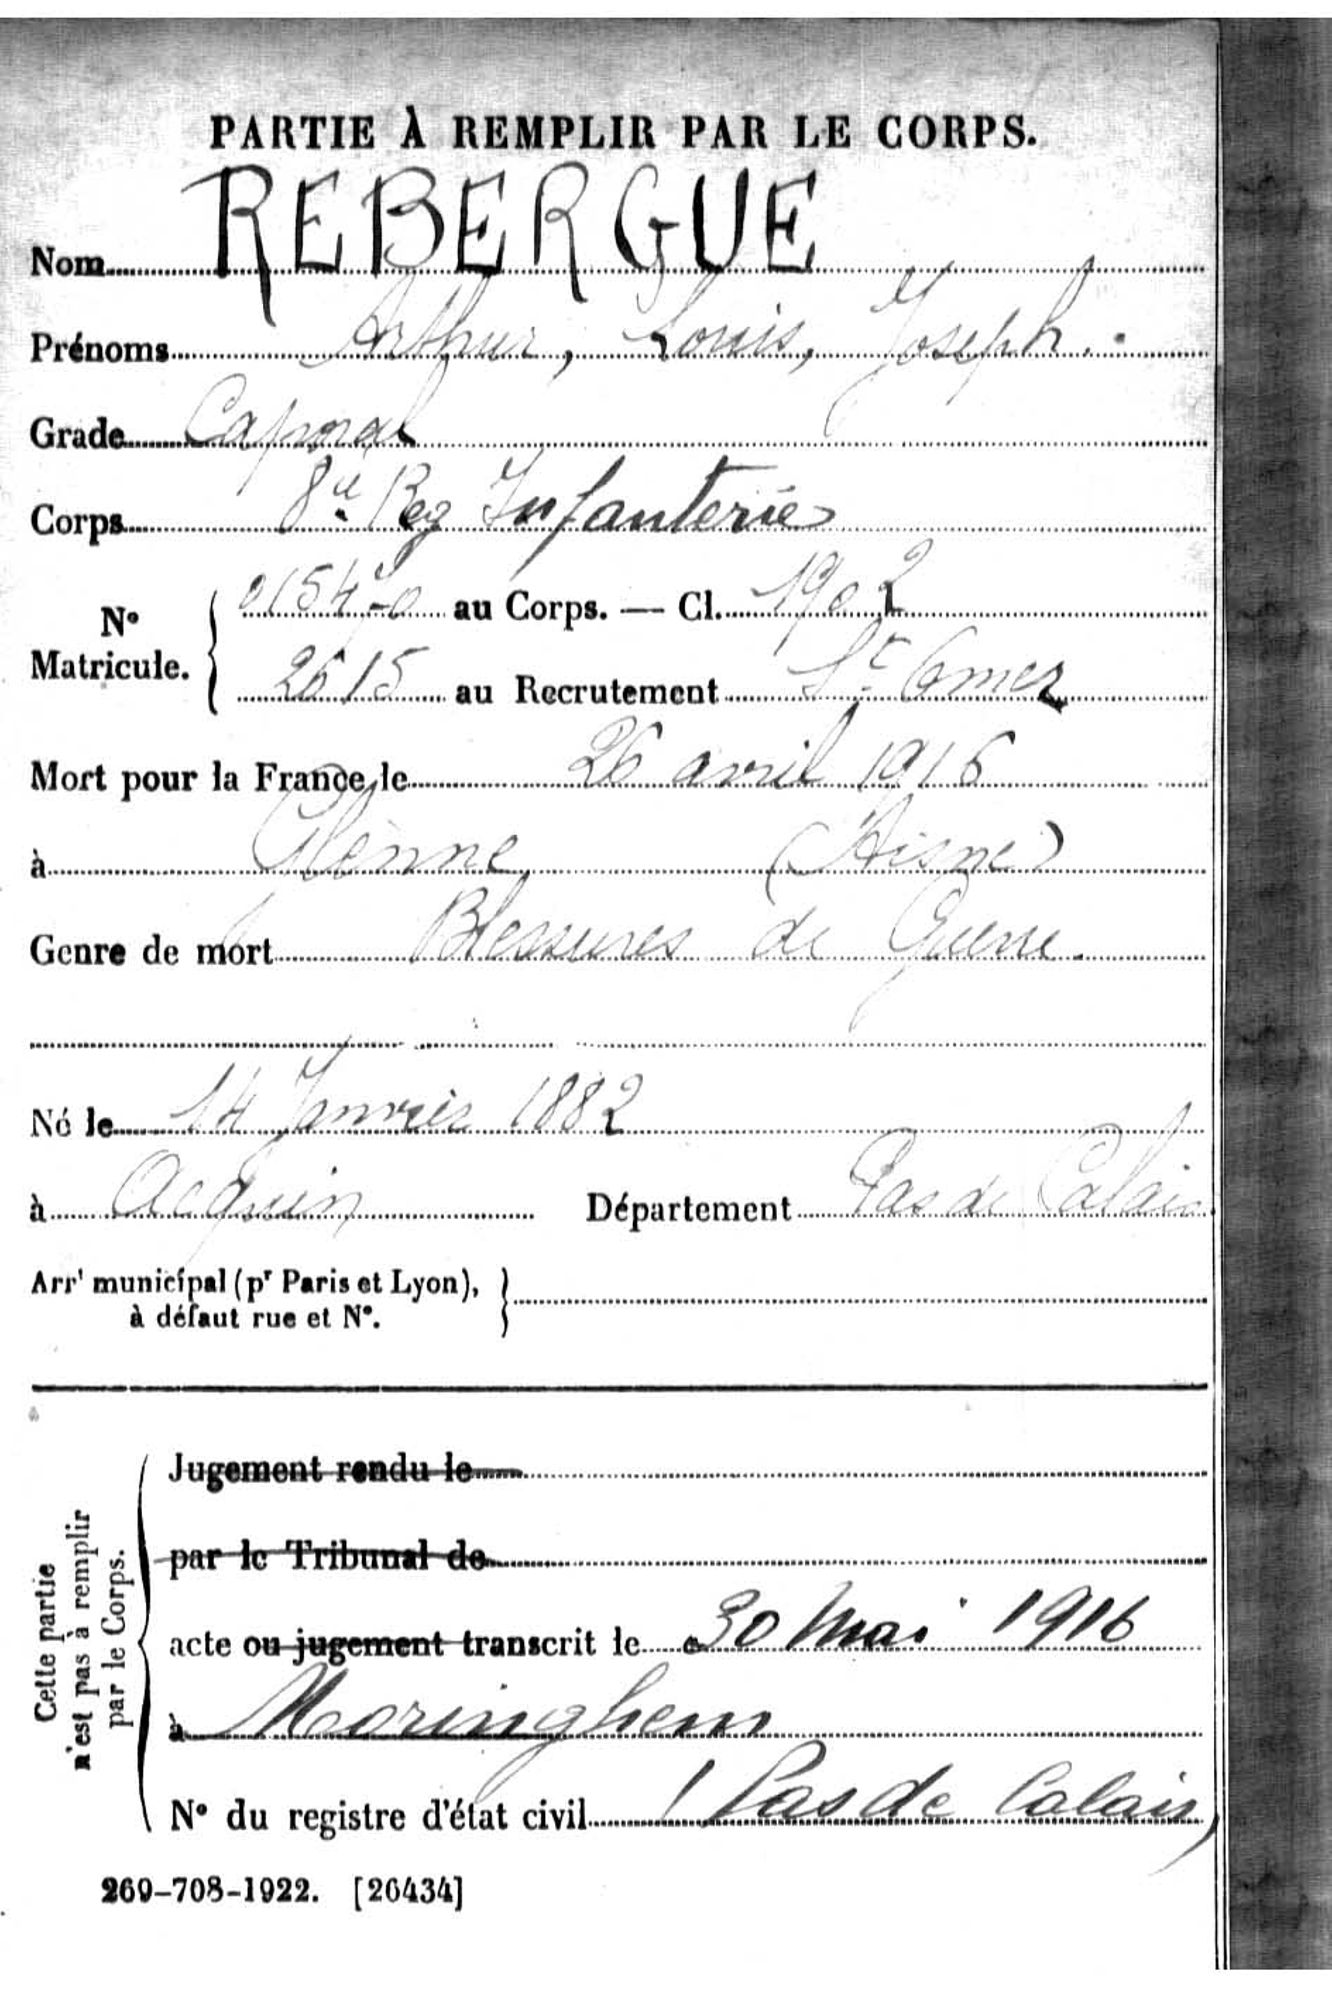 PARTIE À REMPLIR PAR LE CORPS.
Nom REBERGUE
Prénoms Arthur, Louis, Joseph.
Grade Caporal
Corps 8e Reg Infanterie
No Matricule. { au Corps. — Cl. 1902
2615 au Recrutement St Omer
Mort pour la France le 26 avril 1916
à Glenne (Aisne)
Genre de mort Blessures de Guerre.
Né le 14 Janvier 1882
à Acquin Département Pas de Calais
Arrt municipal (pr Paris et Lyon), à défaut rue et No. }
Cette partie n'est pas à remplir par le Corps.
Jugement rendu le
par le Tribunal de
acte ou jugement transcrit le 30 Mai 1916
à Moringhem
No du registre d'état civil (Pas de Calais)
269-708-1922. [26434]